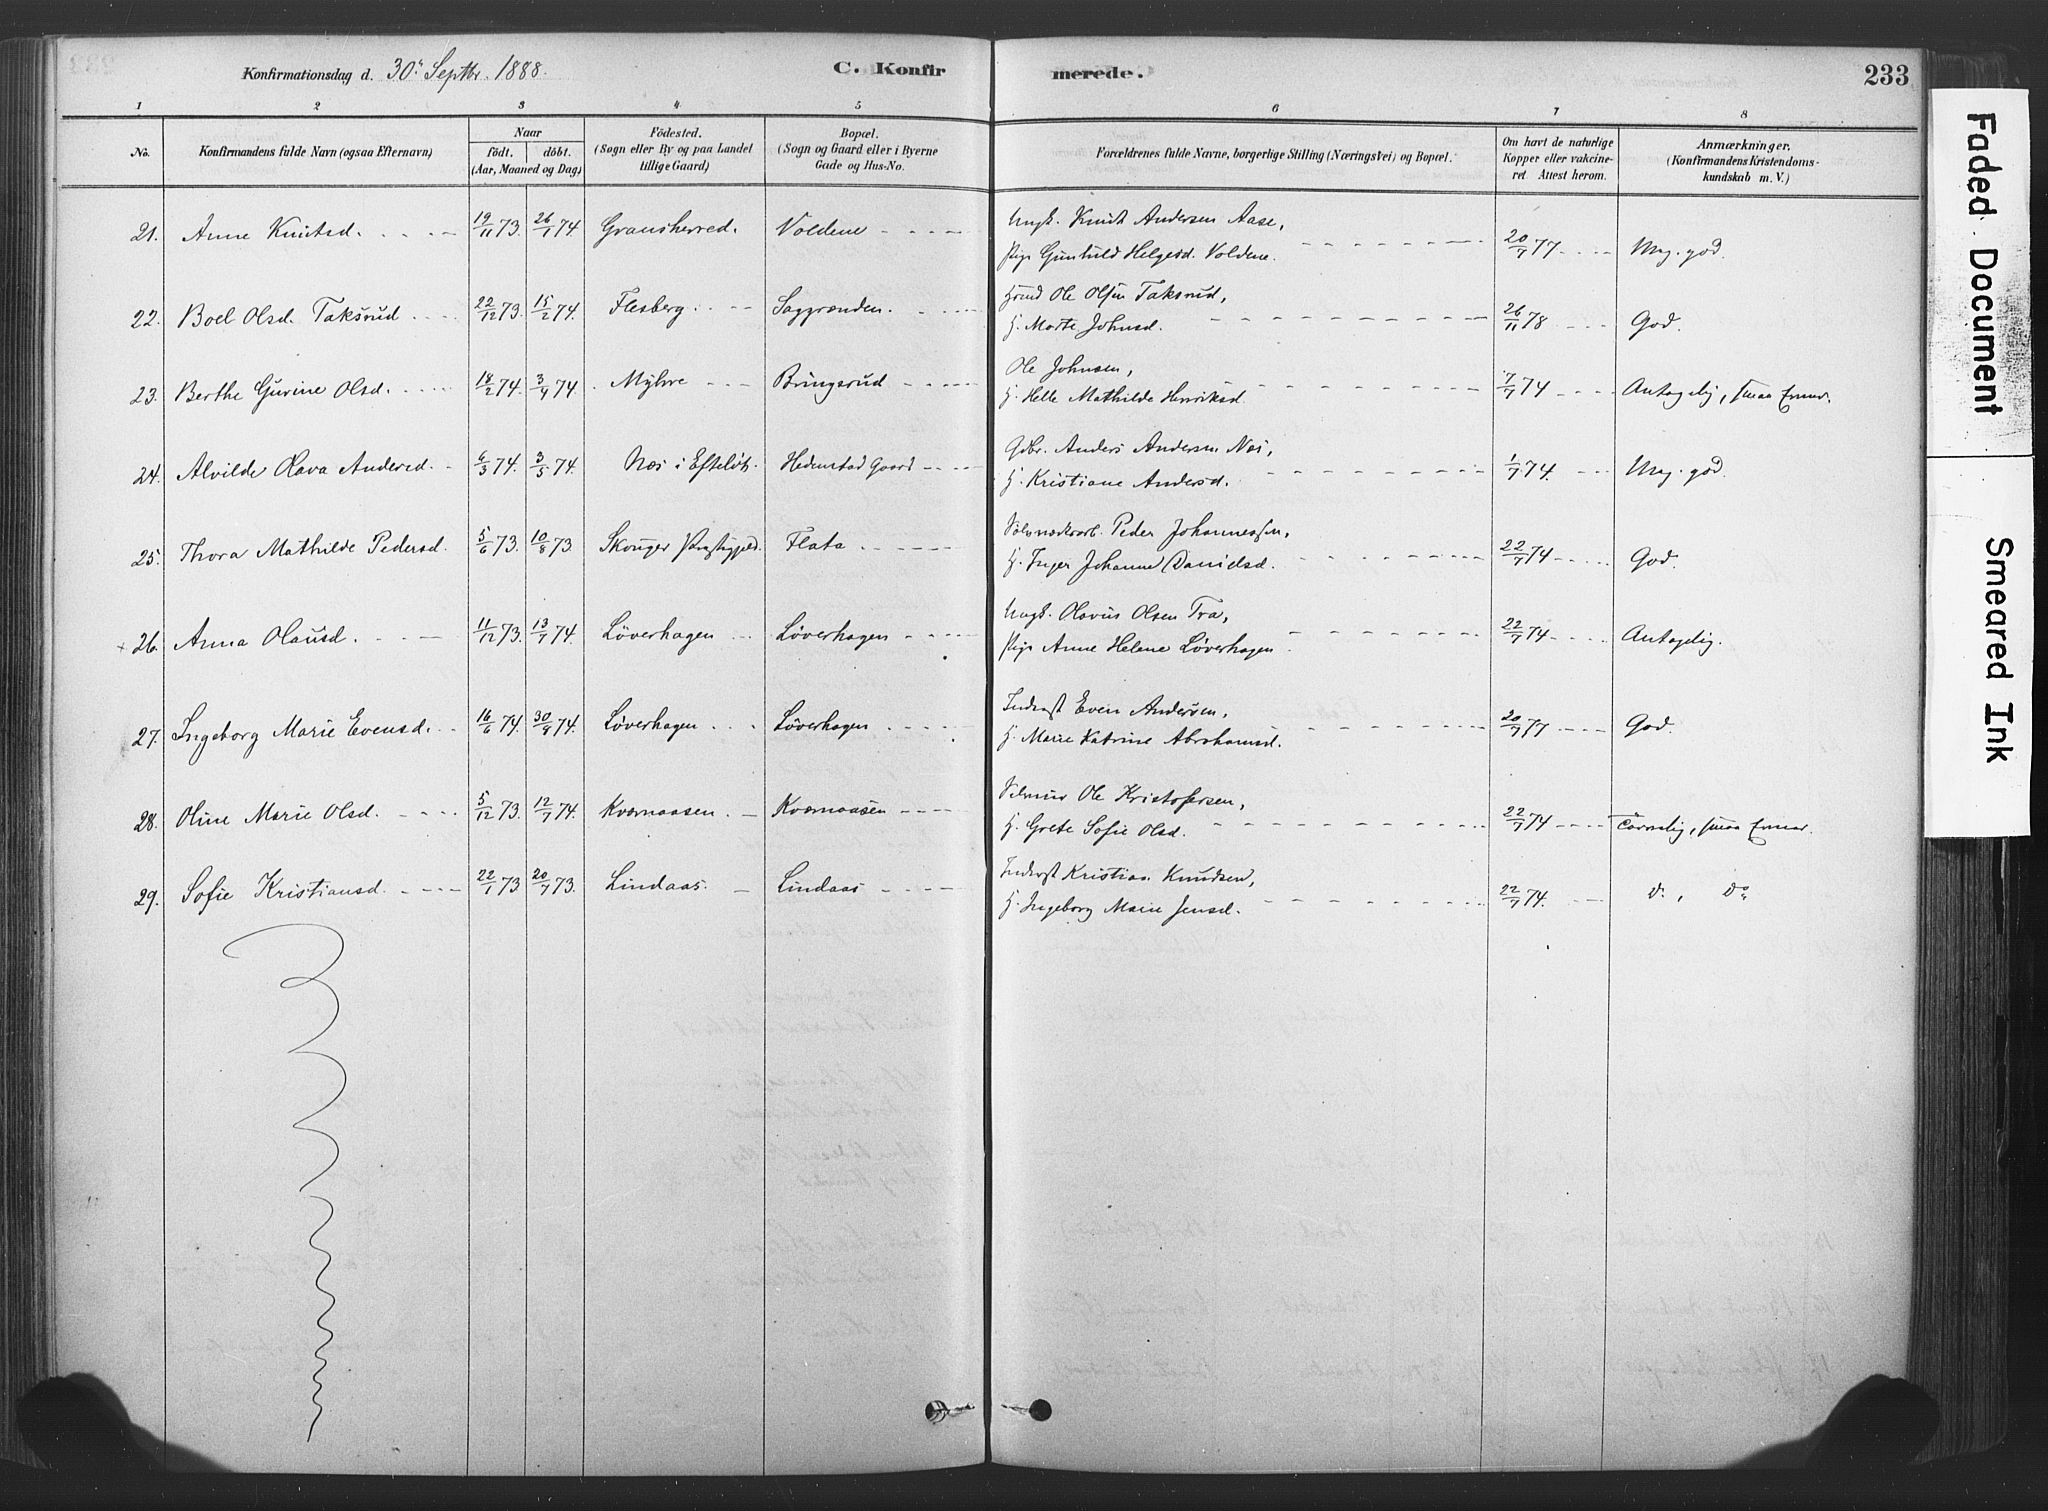 Konfirmationsdag d. 30' Septbr. 1888. C. Konfirmerede. 233
1 2 3 4 5 6 7 8
No. Konfirmandens fulde Navn (ogsaa Efternavn) Naar födt. döbt. (Aar, Maaned og Dag) Födested. (Sogn eller By og paa Landet tillige Gaard) Bopæl. (Sogn og Gaard eller i Byerne Gade og Hus-No. Forældrenes fulde Navne, borgerlige Stilling (Næringsvei) og Bopæl. Om havt de naturlige Kopper eller vakcineret Attest herom. Anmærkninger. (Konfirmandens Kristendomskundskab m. V.)
21. Anne Knutsd. 19/11 73. 26/1 74. Gransherred. Voldene Ungk. Knut Andersen Aase,
Pige Gunhild Helgesd. Voldene. 20/7 77 Mg. god.
22. Boel Olsd. Taksrud 22/12 73. 15/2 74. Flesberg. Saggrænden. Ole Olsen Taksrud,
H. Marte Johnsd. 26/11 78 God.
23. Berthe Gurine Olsd. 18/2 74. 3/4 74. Myhre Bringsrud Ole Johnsen,
H. Helle Mathilde Henriksd. 7/7 74 Antagelig, smaa Evner.
24. Alvilde Olava Andersd. 6/3 74. 3/5 74. Næs i Efteløt. Hedenstad Gaard Gdbr. Anders Andersen Næs,
H. Kristiane Andersd. 1/7 74. Mg. god.
25. Thora Mathilde Pedersd. 5/6 73. 10/8 73. Skouger Prstgjeld. Flata Peder Johannessen,
H. Inger Johanne Danielsd. 22/7 74 God.
26. Anna Olausd. 11/12 73. 13/7 74. Löverhagen Löverhagen Ungk. Olavus Olsen Tra,
Pige Anne Helene Löverhagen 22/7 74 Antagelig.
27. Ingeborg Marie Evensd. 16/6 74. 30/8 74. Löverhagen Löverhagen Inderst Even Andersen,
H. Marie Katrine Abrahamsd. 20/7 77 God.
28. Oline Marie Olsd. 5/12 73. 12/7 74. Kværnaasen. Kværnaasen Ole Kristofersen,
H. Grete Sofie Olsd. 22/7 74 Tarvelig, smaa Evner.
29. Sofie Kristiansd. 22/1 73 20/7 73. Lindaas. Lindaas Inderst Kristian Knudsen,
H. Ingeborg Marie Jensd. 22/7 74. Do, Do
Faded Document
Smeared Ink